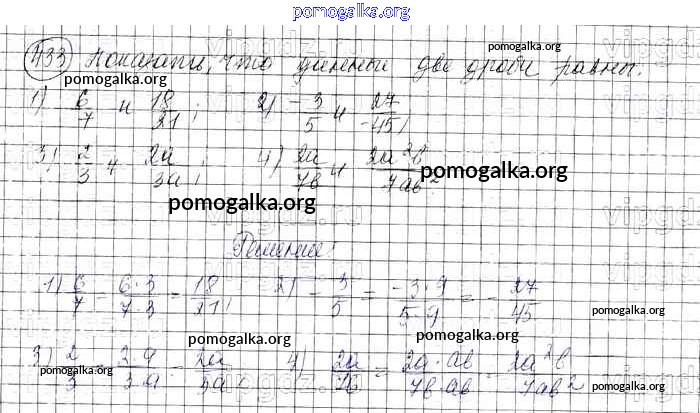 pomogalka.org
433 Показать, что данные две дроби равны.
pomogalka.org
pomogalka.org
1) 6/7 и 18/21; 2) -3/5 и 27/-45;
3) 2/3 и 2a/3a; 4) 2a/7b и 2a²b/7ab²
pomogalka.org
pomogalka.org
Решение:
1) 6/7 = 6·3/7·3 = 18/21; 2) -3/5 = -3·9/5·9 = -27/45
pomogalka.org
pomogalka.org
pomogalka.org
3) 2/3 = 2·a/3·a = 2a/3a; 4) 2a/7b = 2a·ab/7b·ab = 2a²b/7ab²
pomogalka.org
pomogalka.org
pomogalka.org